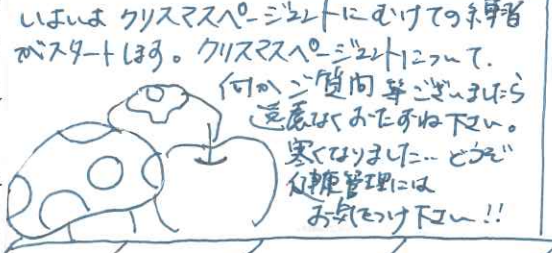 いよいよ クリスマスページェントにむけての練習
がスタートします。クリスマスページェントについて、
何か ご質問 等ございましたら
遠慮なくおたずね下さい。
寒くなりました… どうぞ
健康管理には
お気をつけ下さい!!